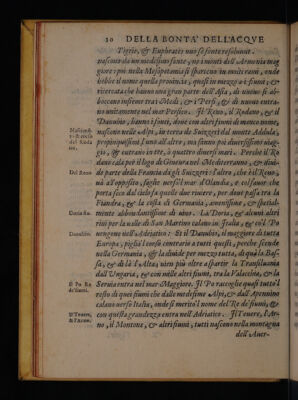 20 DELLA BONTA' DELL'ACQVE
Tigris, & Euphrates uno se fonte resoluunt.
nascono da un medesimo fonte, ne i monti dell'Armenia mag
giore: poi nella Mesopotamia si spartiscono in molti rami, onde
hebbe il nome quella prouincia, quasi in mezzo a i fiumi; &
ricercata che hanno una gran parte dell'Asia, di nuouo si ab-
boccano insieme tra i Medi, & i Persi, & di nuouo entra-
no unitamente nel mar Persico. Il Reno, il Rodano, & il
Danubio, hanno i fonti, doue con altri fiumi di manco nome,
nascono nelle Alpi, in terra de Suizzeri dal monte Adula,
propinquissimi l'uno all'altro, ma fanno poi diuersissimo uiag-
gio, & entrano in tre, ò quattro diuersi mari. Perche il Ro
dano cala per il lago di Geneura nel Mediterraneo, & diui-
de parte della Francia dagli Suizzeri: l'altro, che è il Reno,
và all'opposito, & sbocca nel mar d'Olanda, & costumano che
porta seco dal cielo
Fiandra, & la costa di Germania, amenissima, & spetial-
mente abbondantissima di uino. La Doria, & alcuni altri
riui per la ualle di San Martino calano in Italia, & co'l Po
uengono nell'Adriatico: Et il Danubio, il maggiore di tutta
Europa, piglia'l corso contrario a tutti questi, perche scende
nella Germania, & la diuide per mezzo tutta, di quà la Bas-
sa, & di là l'Alta; uien più oltre a spartir la Transiluania
dall'Vngaria, & con mille altri fiumi, tra la Valacchia, & la
Seruia entra nel mar Maggiore. Il Po raccoglie quasi tutto'l
resto di quei fiumi che dalle medesime Alpi, & dall'Apennino
calano uerso Italia, onde si meritò'l nome del Re de' fiumi, &
con questa grandezza entra nell'Adriatico. Il Teuere, l'Ar-
no, il Montone, & altri fiumi, tutti nascono nella montagna
dell'Auer-
Nascimē-
to & corso
del Roda
no.
Del Reno.
Doria fiu.
Danubio.
Il Po Re
de' fiumi.
Il Teuere,
& l'Arno.